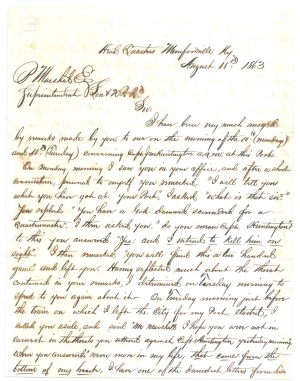 Head Quarters Munfordville Ky
August 11th 1863
P Marshall Esq
Superintendent L&N R.R.
Sir
I have been very much annoyed
by remarks made by you to me on the morning of the 10th (Monday)
and 11th (Tuesday) concerning Capt Huntington a.q.m. at this Post.
On Monday morning I saw you in your office, and after a short
conversation, you remarked, "I will tell you
what you have got at your Post," I asked "what is that sir."
You replied "You have a God damned scoundrel for a
Quartermaster." I then asked you, "do you mean Capt Huntington"
to this you answered "Yes: and I intend to kill him on
sight." I then remarked "you will find this a two handed
game" and left you. Having reflected much about the threat
contained in your remarks, I determined on Tuesday morning to
speak to you again about it. On Tuesday morning just before
the train on which I left the City for my Post started, I
called you aside, and said "Mr Marshall I hope you were not in
earnest in the threats you uttered against Capt Huntington yesterday morning
When you answered "never more in my life, that came from the
bottom of my heart, I have one of the damndest letters from him